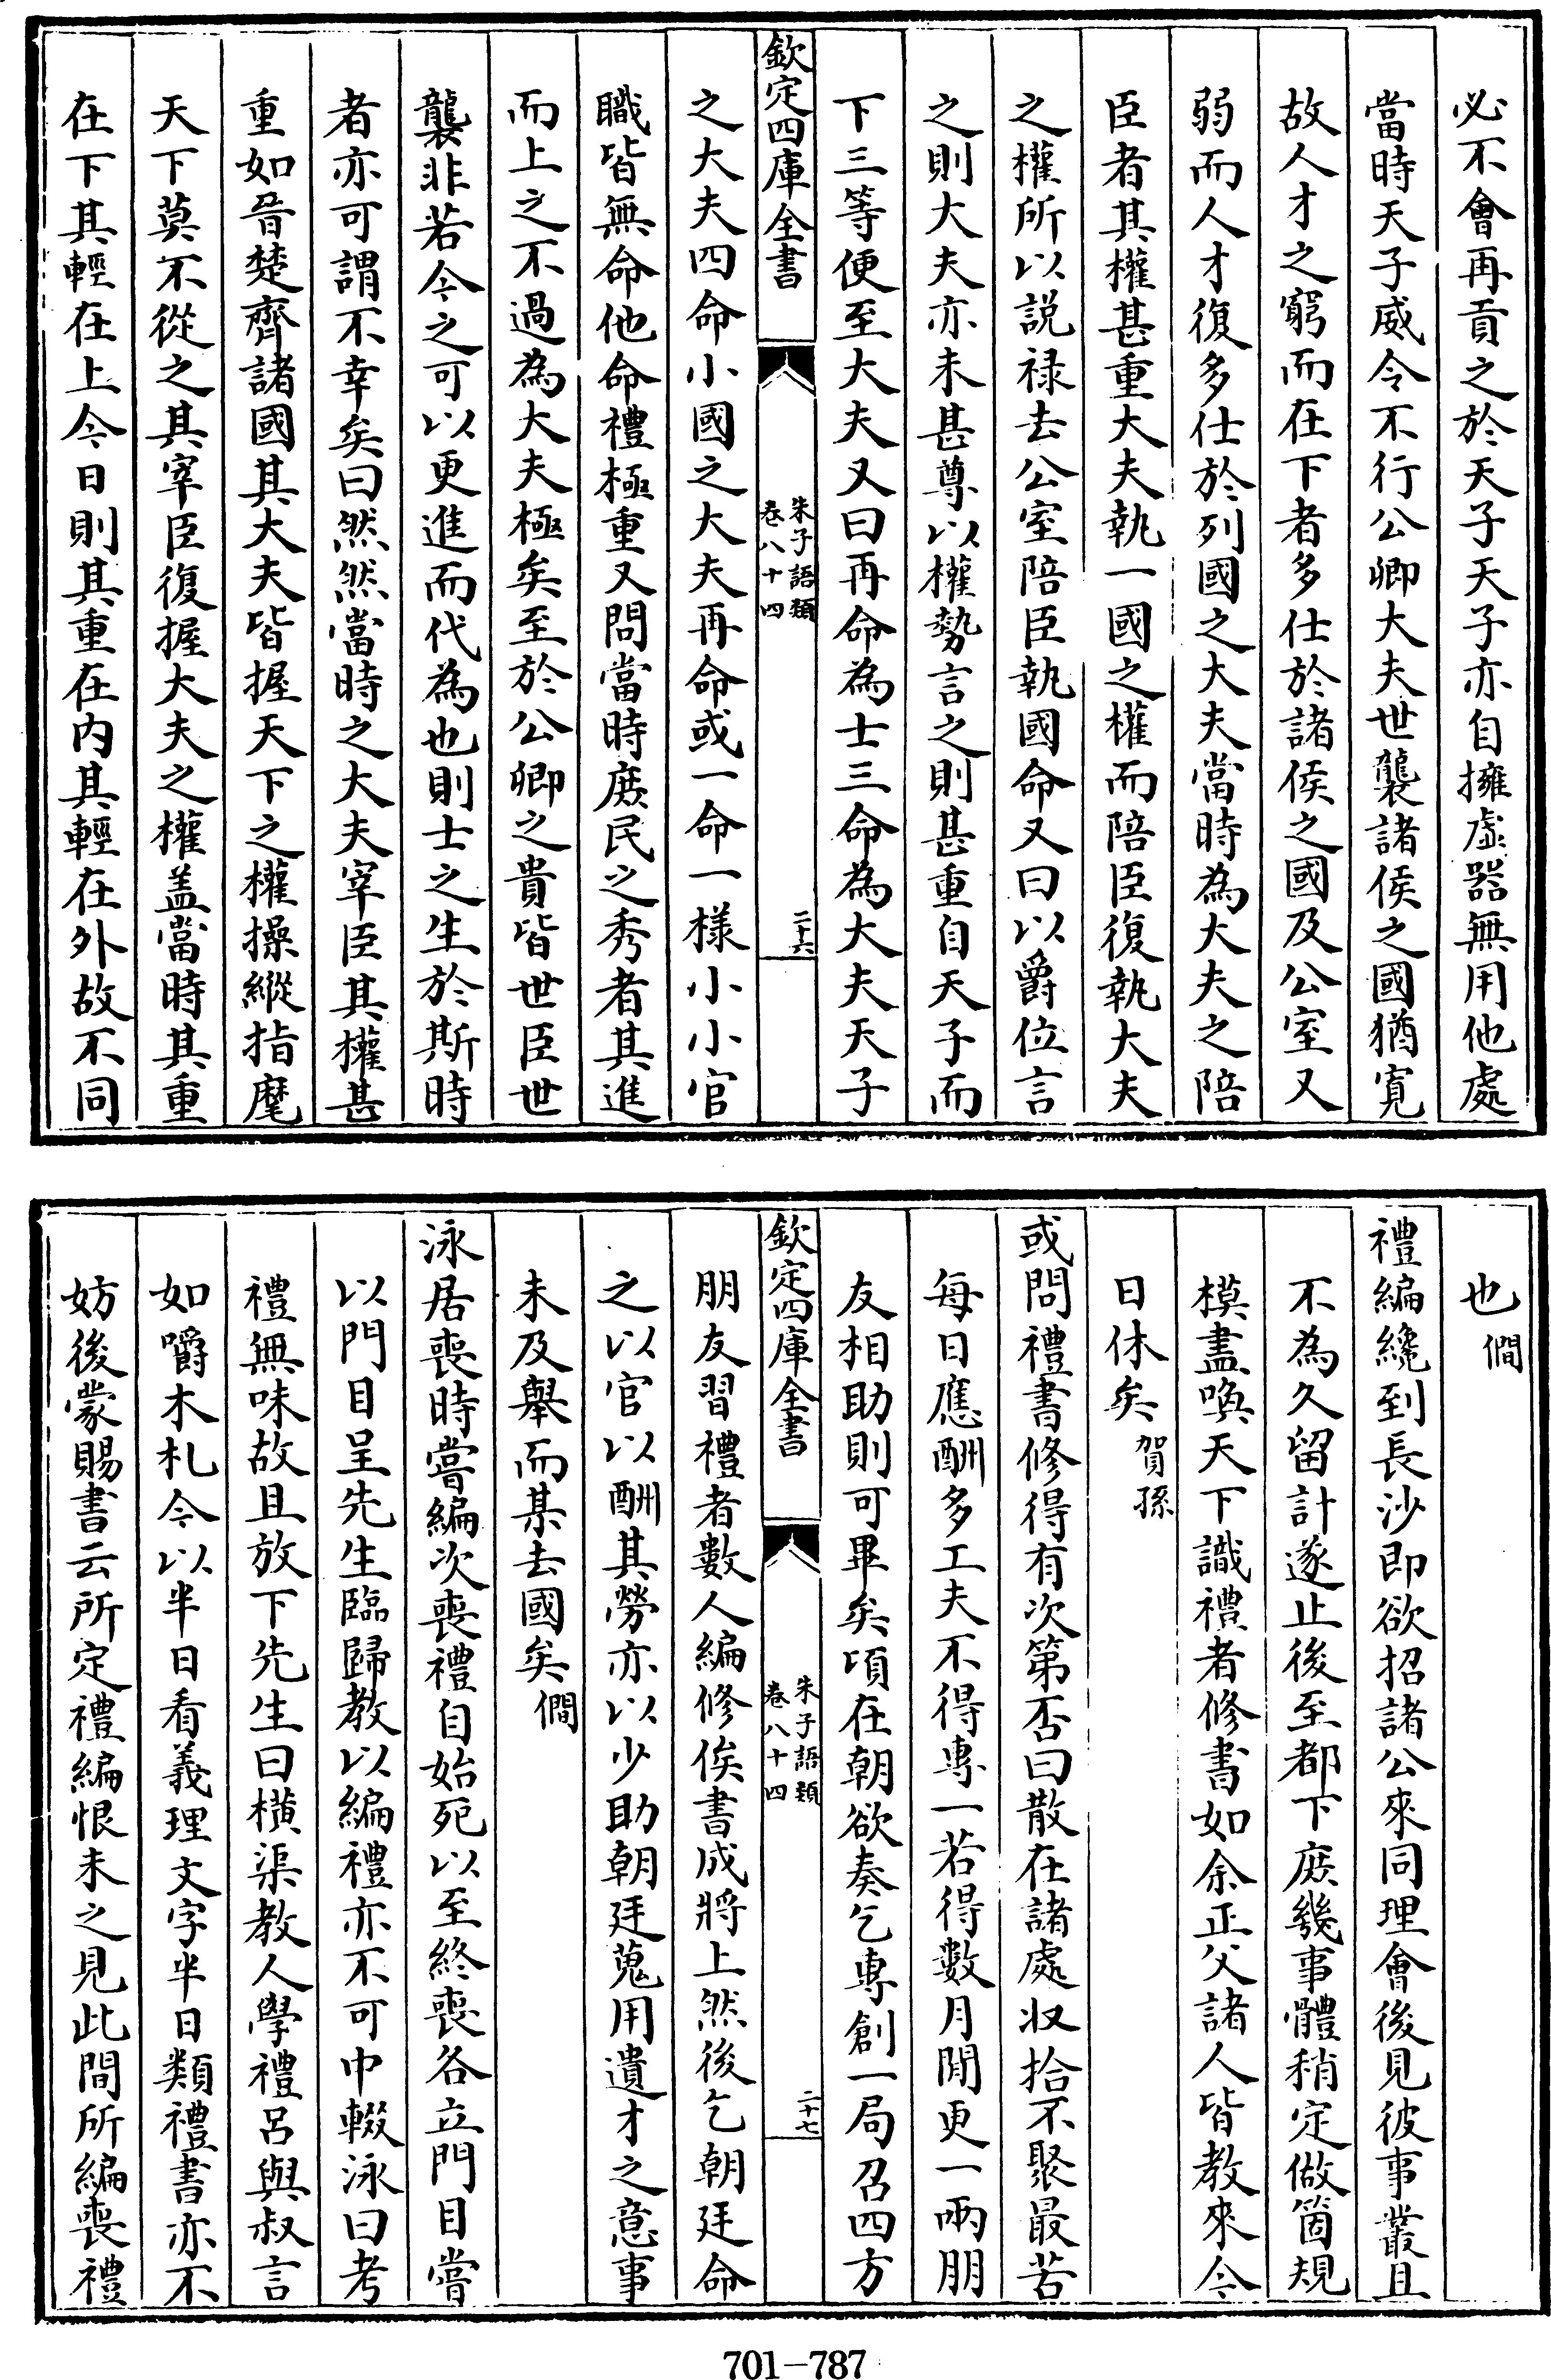 必不會再貢之於天子天子亦自擁虛器無用他處
當時天子威令不行公卿大夫世襲諸侯之國猶寛
故人才之窮而在下者多仕於諸侯之國及公室又
弱而人才復多仕於列國之大夫當時為大夫之陪
臣者其權甚重大夫執一國之權而陪臣復執大夫
之權所以説禄去公室陪臣執國命又曰以爵位言
之則大夫亦未甚尊以權勢言之則甚重自天子而
下三等便至大夫又曰再命為士三命為大夫天子
欽定四庫全書
朱子語類
卷八十四
二十六
之大夫四命小國之大夫再命或一命一樣小小官
職皆無命他命禮極重又問當時庶民之秀者其進
而上之不過為大夫極矣至於公卿之貴皆世臣世
襲非若今之可以更進而代為也則士之生於斯時
者亦可謂不幸矣曰然然當時之大夫宰臣其權甚
重如晉楚齊諸國其大夫皆握天下之權操縱指麾
天下莫不從之其宰臣復握大夫之權盖當時其重
在下其輕在上今日則其重在内其輕在外故不同
也 僩
禮編纔到長沙即欲招諸公來同理會後見彼事叢且
不為久留計遂止後至都下庶幾事體稍定做箇規
模盡喚天下識禮者修書如余正父諸人皆教來今
日休矣 賀孫
或問禮書修得有次第否曰散在諸處收拾不聚最苦
每日應酬多工夫不得專一若得數月閒更一兩朋
友相助則可畢矣頃在朝欲奏乞專創一局召四方
欽定四庫全書
朱子語類
卷八十四
二十七
朋友習禮者數人編修俟書成將上然後乞朝廷命
之以官以酬其勞亦以少助朝廷蒐用遺才之意事
未及舉而某去國矣 僩
泳居喪時嘗編次喪禮自始死以至終喪各立門目嘗
以門目呈先生臨歸教以編禮亦不可中輟泳曰考
禮無味故且放下先生曰横渠教人學禮呂與叔言
如嚼木札今以半日看義理文字半日類禮書亦不
妨後蒙賜書云所定禮編恨未之見此間所編喪禮
701-787